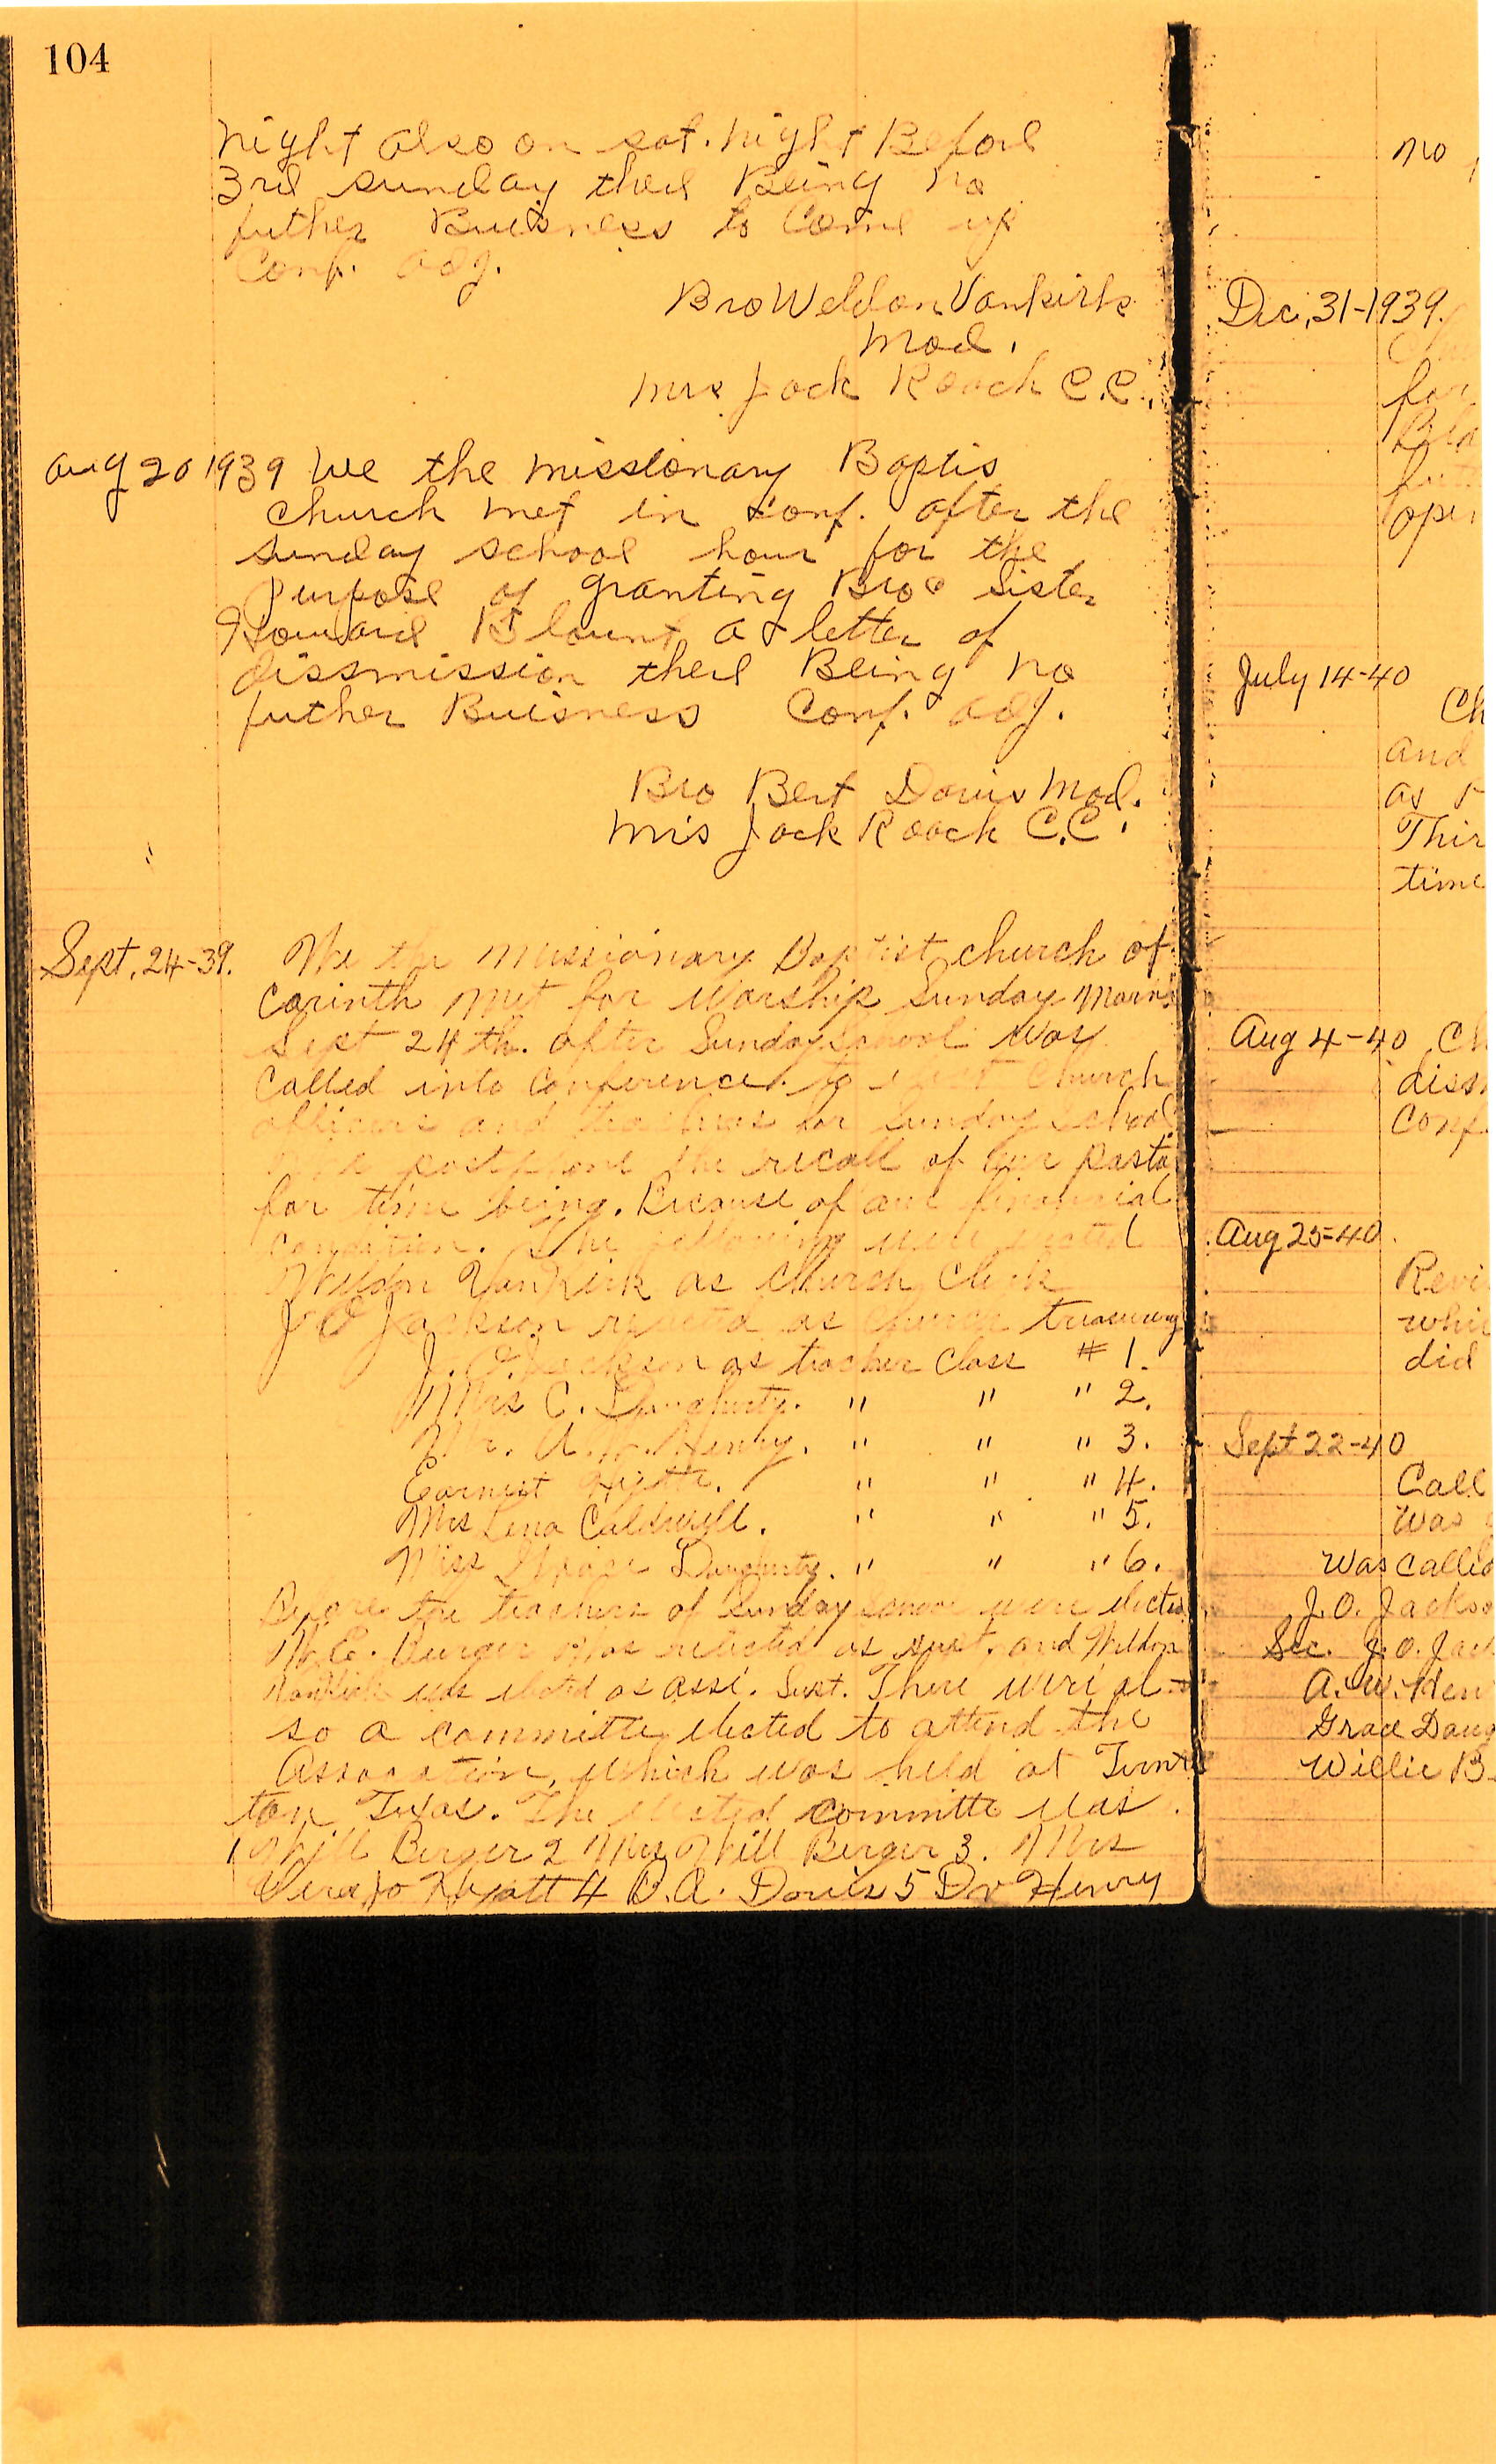 104
night also on sat. night Before
3rd sunday there Being no
futher Buisness to Come up
Conf. adj.
Bro Weldon Vankirk
Mod.
Mrs Jack Roach C.C.
Aug 20 1939 We the missionary Baptis
church met in conf. after the
sunday school hour for the
Purpose of granting Bro & Sister
Howard Blount a letter of
dissmission there Being no
futher Buisness Conf. adj.
Bro Bert Davis Mod.
Mrs Jack Roach C.C.
Sept. 24-39. We the missionary Baptist church of
Corinth met for worship Sunday Morn
Sept 24th. after Sunday School was
Called into Conference. to elect Church
officers and teachers for Sunday School
postpone the recall of our Pastor
for time being. Because of our financial
Condition. The following were elected
Weldon Vankirk as Church Clerk
J O Jackson as Church treasurery
J. O. Jackson as teacher Class # 1.
Mrs C. Daugherty. " " " 2.
Mr. A. W. Henry. " " " 3.
Earnest " " " 4.
Mrs Lena Caldwell. " " " 5.
Miss Grace Daugherty. " " " 6.
Before the teachers of Sunday School were elected
W. E. Burger was relected as supt. and Weldon
Vankirk was elected as assi. Supt. There were al-
so a committe elected to attend the
Assocation, which was held at Turn
ton Texas. The elected committe was
1 Will Berger 2 Mrs Will Berger 3. Mrs
Hyatt 4 B.A. Davis 5 Dr Henry
no
Dec. 31-1939.
for
oper
July 14-40
Ch
and
as
Thir
time
Aug 4-40 Ch
diss
Conf
Aug 25-40.
Revi
whi
did
Sept 22-40
Call
Was
Was called
J.O. Jackso
Sec. J.O. Jac
A.W. Hen
Grace Daug
Willie B